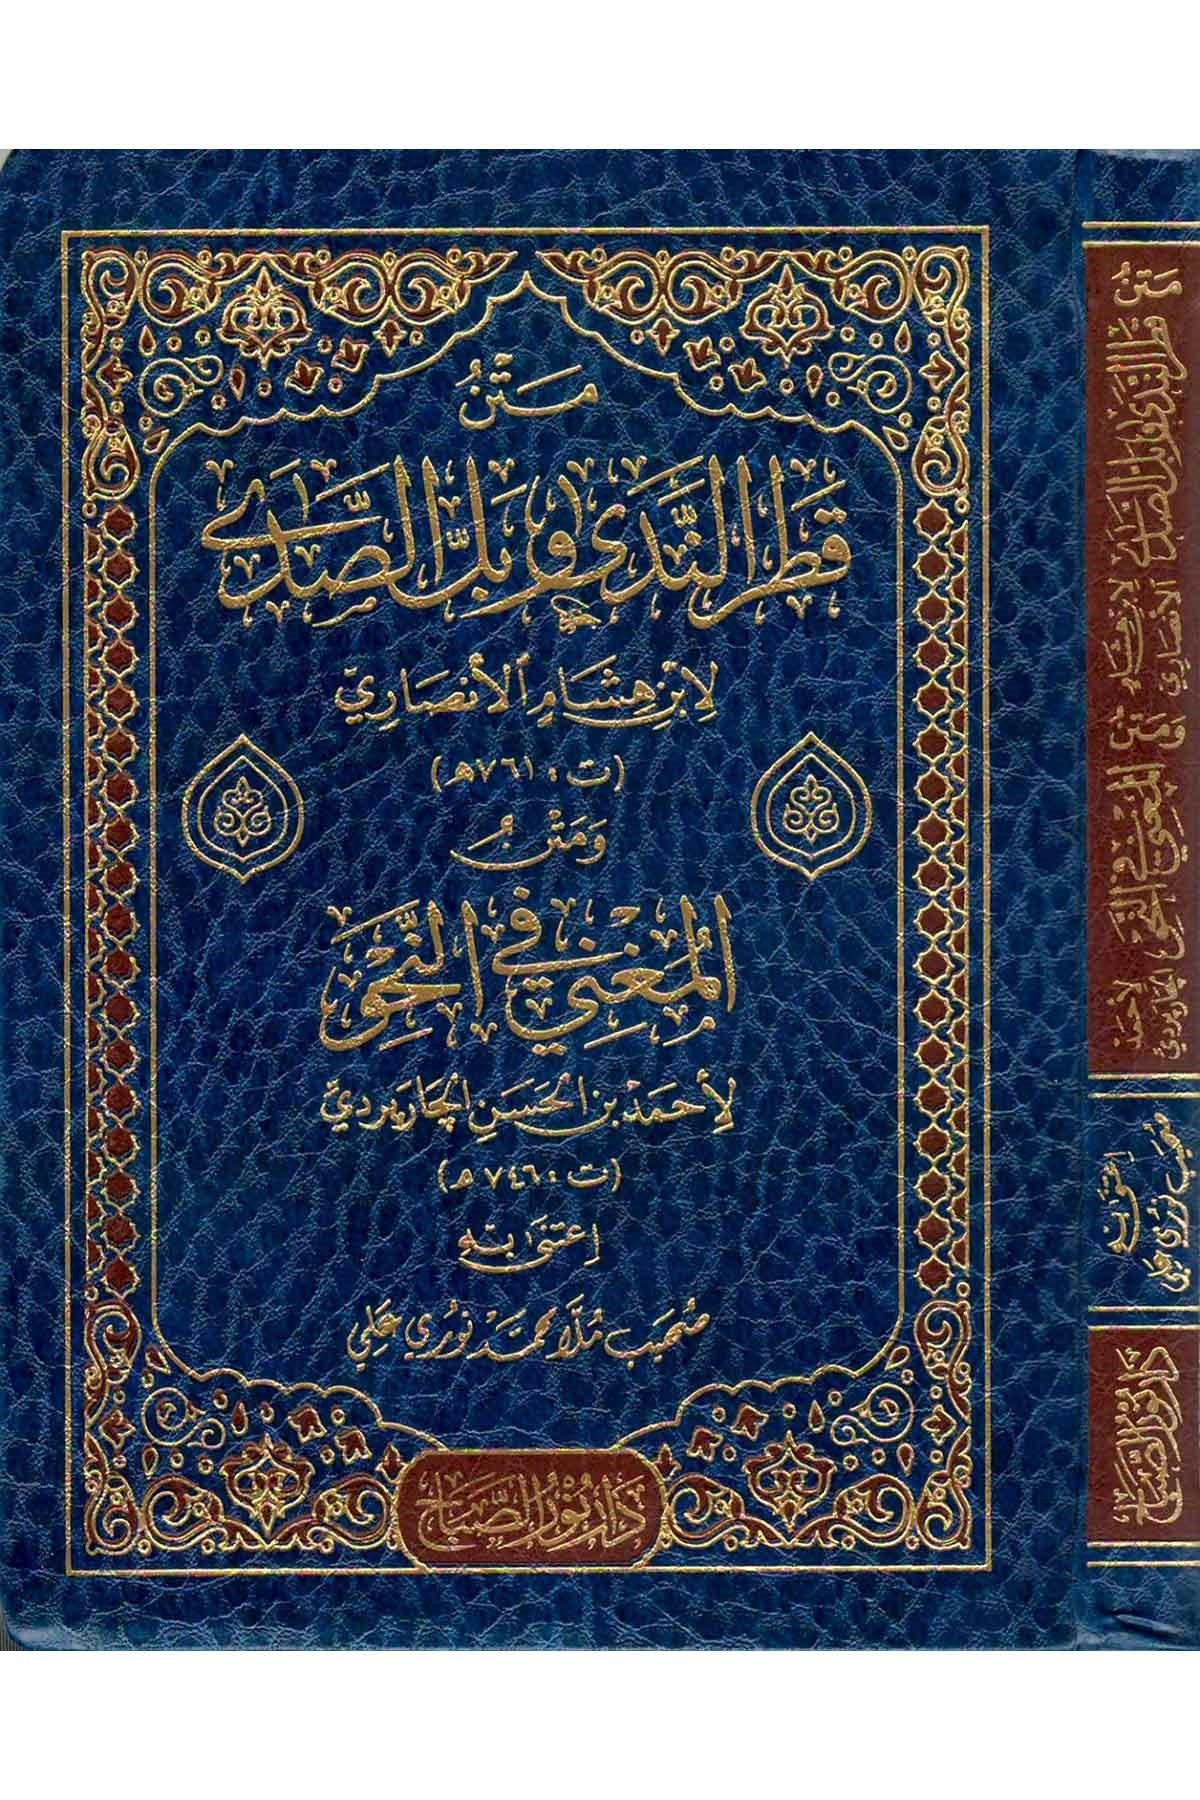 مَتْنُ
قَطْرِ النَّدَى وَبَلِّ الصَّدَى
لِابْنِ هِشَامٍ الْأَنْصَارِيّ
(ت: ٧٦١هـ)
وَمَتْنُ
الْمُغْنِي فِي النَّحْوِ
لِأَحْمَدَ بْنِ الْحَسَنِ الْجَارْبَرْدِيّ
(ت: ٧٤٦هـ)
اِعْتَنَى بِهِ
صُهَيْب مُلَّا مُحَمَّد نُورِي عَلِي
دَارُ نُورِ الصَّبَاحِ
مَتْنُ قَطْرِ النَّدَى وَبَلِّ الصَّدَى لِابْنِ هِشَامٍ الْأَنْصَارِي وَمَتْنُ الْمُغْنِي فِي النَّحْوِ لِأَحْمَدَ الْجَارْبَرْدِيّ
اِعْتَنَى بِهِ
صُهَيْب نُورِي عَلِي
دَارُ نُورِ الصَّبَاحِ